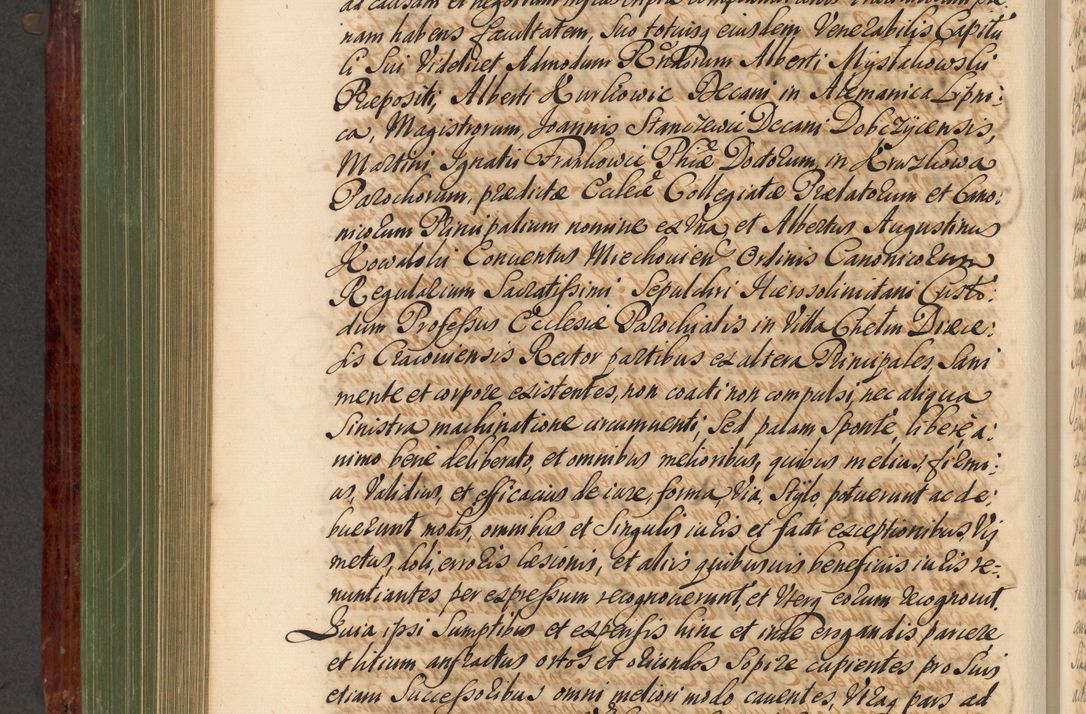 nam habens facultatem, suo totiusq eiusdem Venerabilis Capitu
li sui Videlicet Admodum Rndorum Alberti Mystakowski
Præpositi, Alberti Kurkowic Decani in Alemanica Lipni:
ca, Magistrorum, Joannis Stanczewic Decani Dobczÿcensis,
Martini Ignatii Frankowic Phiæ Doctorum, in Kruzlowa
Parochorum, prædictæ Eccleæ Collegiatæ Prælatorum et Cano:
nicorum Principalium nomine ex Vna et Albertus Augustinus
Kowalski Conuentus Miechouien Ordinis Canonicorum
Regularium Sacratissimi Sepulchri Hierosolimitani Custo:
dum Professus Ecclesiæ Parochialis in Villa Chelm Diæce:
sis Cracouiensis Rector partibus ex altera Principales, Sani
mente et corpore existentes, non coacti non compulsi, nec aliqua
Sinistra machinatione circumuenti, Sed palam, Sponte, libere a:
nimo bene deliberato, et omnibus melioribus, quibus melius, firmi:
us, Validius, et efficacius de iure, forma, Via, Stÿlo, potuerunt ac de:
buerunt modis, omnibus et Singulis iuris et facti exceptionibus, Vis
metus, doli, erroris læsionis, et aliis quibusuis beneficiis iuris re=
nuntiantes per expressum recognouerunt, et Vterq eorum recognouit.
Quia ipsi Sumptibus et expensis hinc et inde erogandis parcere
et litium anfractus ortos et oriundos Sopire cupientes pro Suis
etiam Successoribus omni meliori modo cauentes, Vtraq pars ad